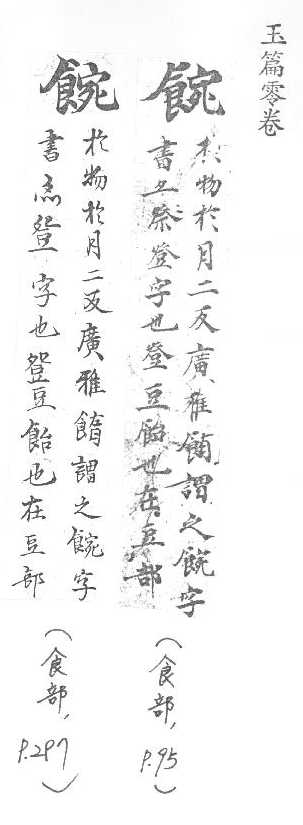 玉篇零卷
䬼
於物於月二反廣雅謂之䬼字
書亦字也豆飴也在豆部
(食部, P.95)
䬼
於物於月二反廣雅謂之䬼字
書亦字也豆飴也在豆部
(食部, P.297)